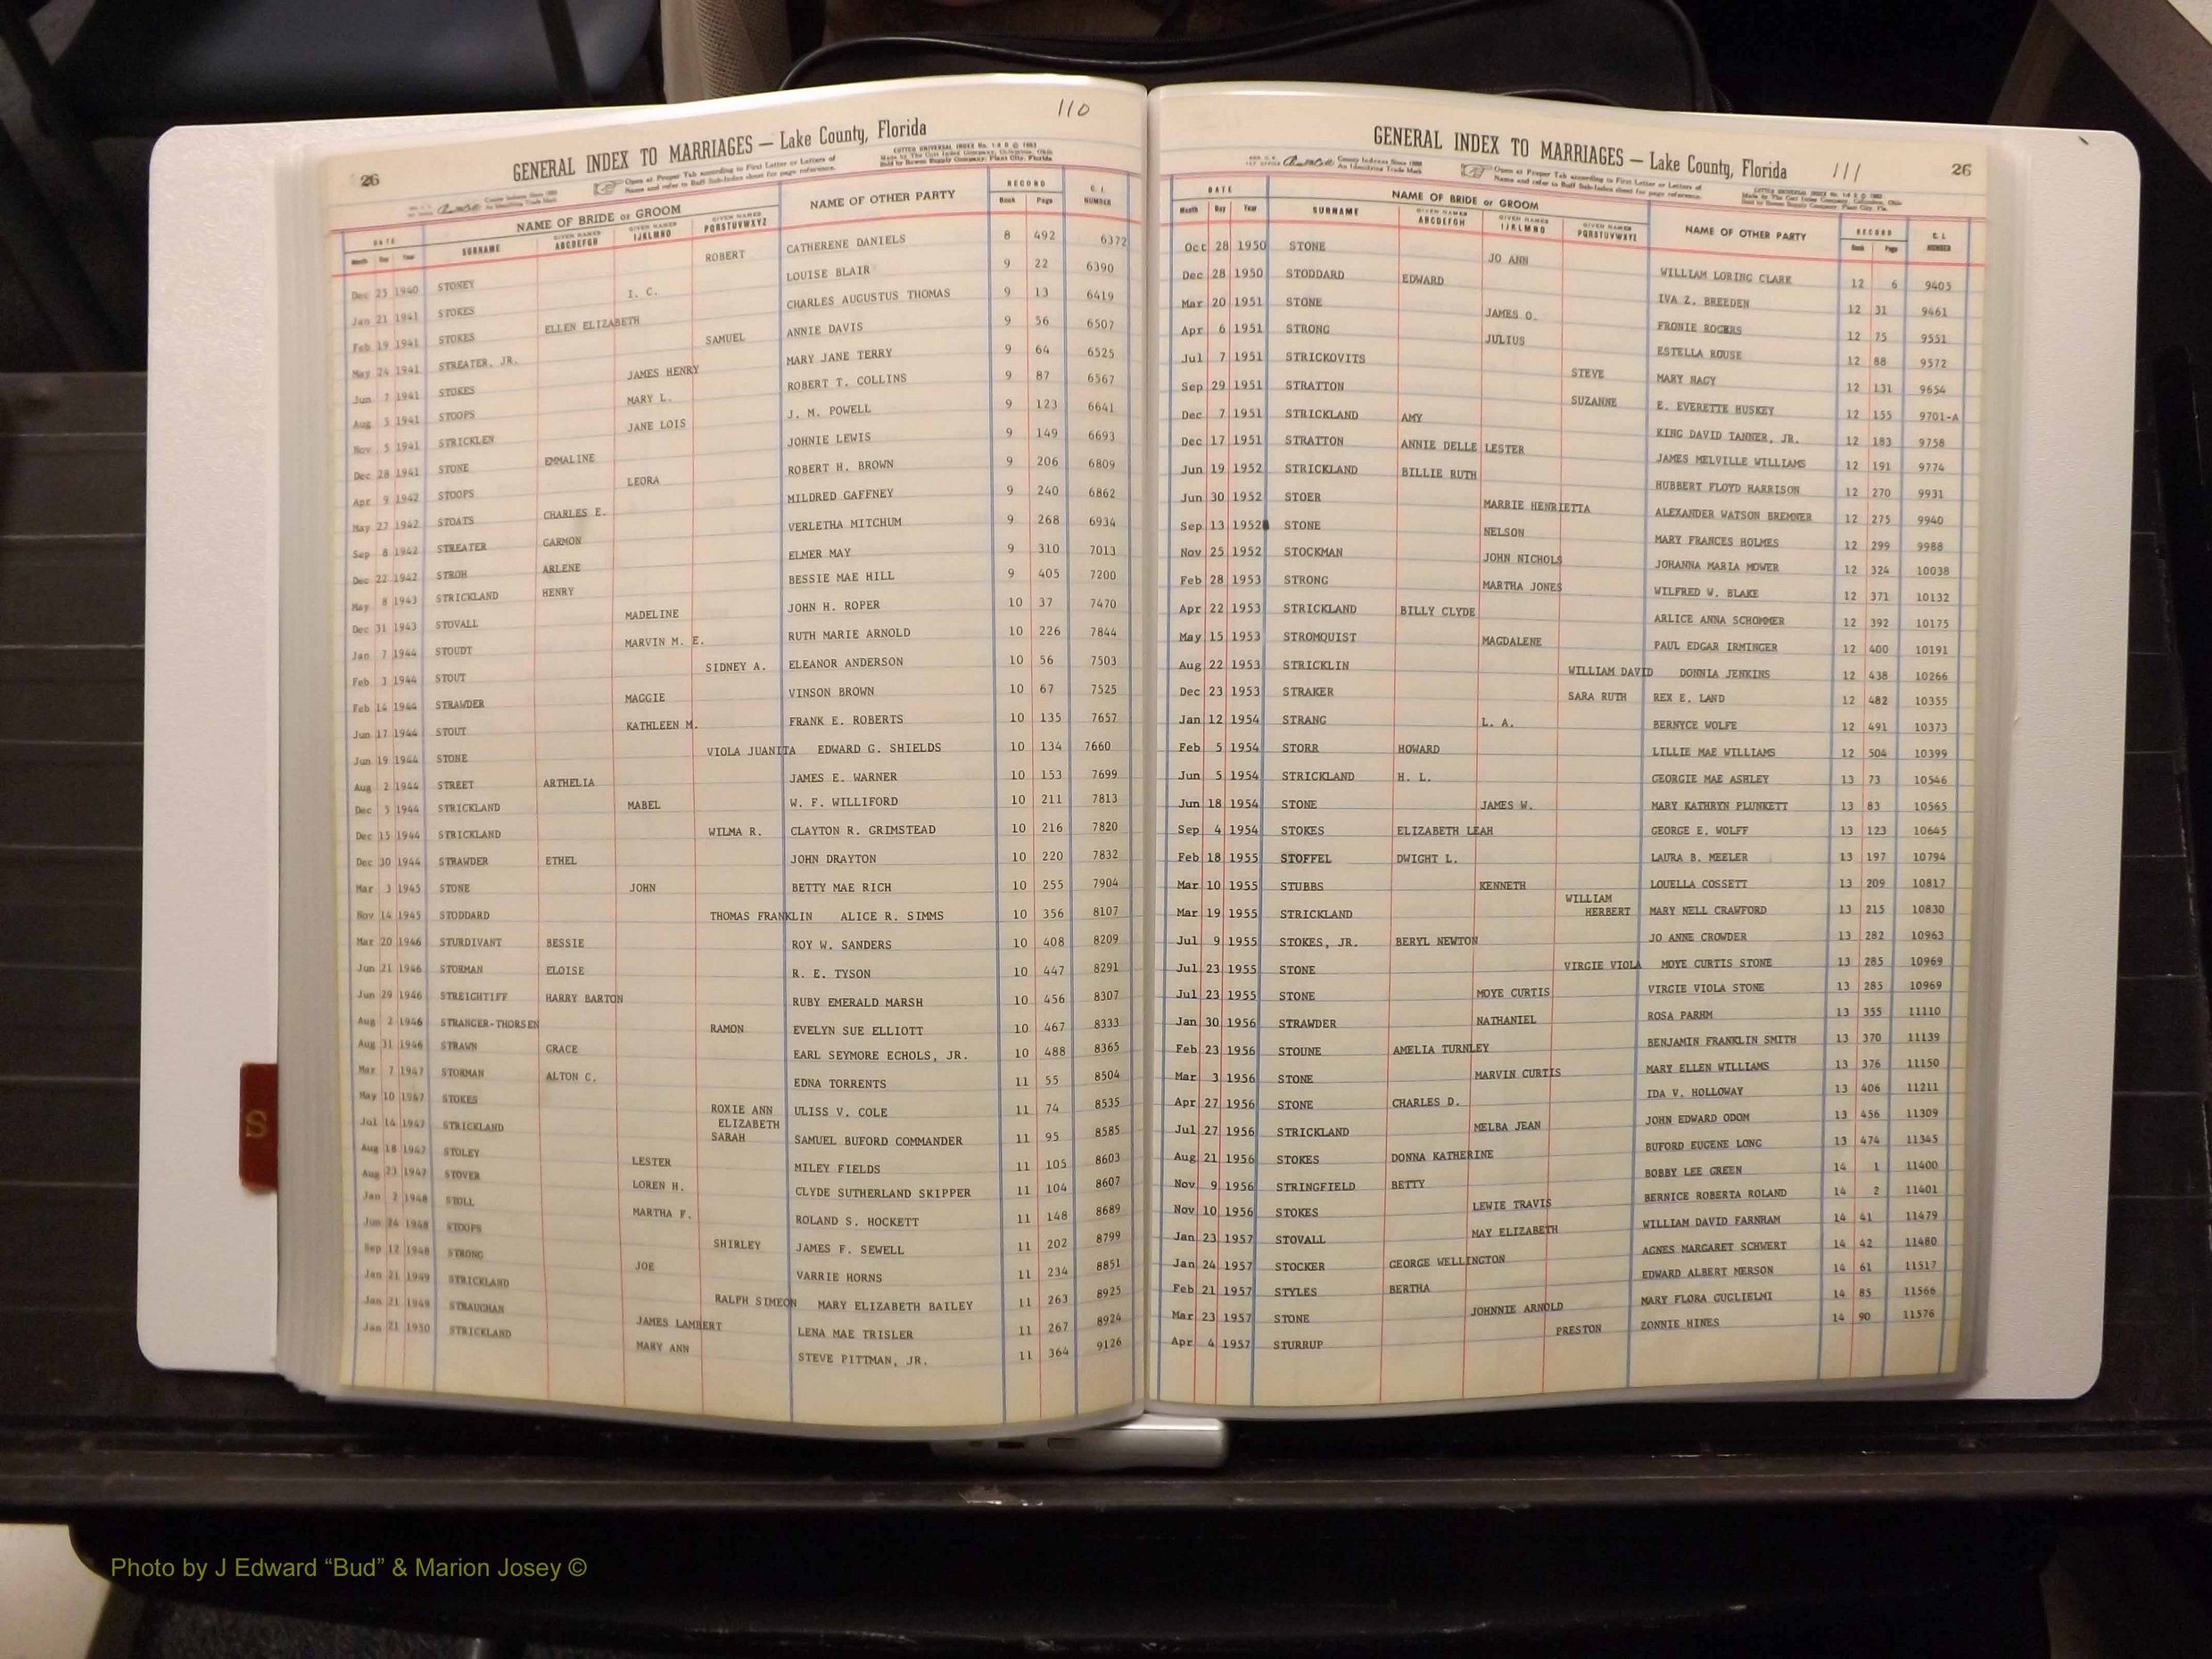 110
GENERAL INDEX TO MARRIAGES — Lake County, Florida
26
Open at Proper Tab according to First Letter or Letters of
Name and refer to Buff Sub-Index sheet for page reference.
COTTED UNIVERSAL INDEX
Made by The Cott Index Company, Columbus, Ohio
Sold by Bowen Supply Company, Plant City, Florida
DATE NAME OF BRIDE or GROOM NAME OF OTHER PARTY RECORD C. I. NUMBER
Month Day Year SURNAME GIVEN NAMES ABCDEFGH GIVEN NAMES IJKLMNO GIVEN NAMES PQRSTUVWXYZ Book Page
Dec 25 1940 STONEY ROBERT CATHERENE DANIELS 8 492 6372
Jan 21 1941 STOKES I. C. LOUISE BLAIR 9 22 6390
Feb 19 1941 STOKES ELLEN ELIZABETH CHARLES AUGUSTUS THOMAS 9 13 6419
May 24 1941 STREATER, JR. SAMUEL ANNIE DAVIS 9 56 6507
Jun 7 1941 STOKES JAMES HENRY MARY JANE TERRY 9 64 6525
Aug 5 1941 STOOPS MARY L. ROBERT T. COLLINS 9 87 6567
Nov 5 1941 STRICKLEN JANE LOIS J. M. POWELL 9 123 6641
Dec 28 1941 STONE EMMALINE JOHNIE LEWIS 9 149 6693
Apr 9 1942 STOOPS LEORA ROBERT H. BROWN 9 206 6809
May 27 1942 STOATS CHARLES E. MILDRED GAFFNEY 9 240 6862
Sep 8 1942 STREATER GARMON VERLETHA MITCHUM 9 268 6934
Dec 22 1942 STROH ARLENE ELMER MAY 9 310 7013
May 8 1943 STRICKLAND HENRY BESSIE MAE HILL 9 405 7200
Dec 31 1943 STOVALL MADELINE JOHN H. ROPER 10 37 7470
Jan 7 1944 STOUDT MARVIN M. E. RUTH MARIE ARNOLD 10 226 7844
Feb 3 1944 STOUT SIDNEY A. ELEANOR ANDERSON 10 56 7503
Feb 14 1944 STRAWDER MAGGIE VINSON BROWN 10 67 7525
Jun 17 1944 STOUT KATHLEEN M. FRANK E. ROBERTS 10 135 7657
Jun 19 1944 STONE VIOLA JUANITA EDWARD G. SHIELDS 10 134 7660
Aug 2 1944 STREET ARTHELIA JAMES E. WARNER 10 153 7699
Dec 5 1944 STRICKLAND MABEL W. F. WILLIFORD 10 211 7813
Dec 15 1944 STRICKLAND WILMA R. CLAYTON R. GRIMSTEAD 10 216 7820
Dec 30 1944 STRAWDER ETHEL JOHN DRAYTON 10 220 7832
Mar 3 1945 STONE JOHN BETTY MAE RICH 10 255 7904
Nov 14 1945 STODDARD THOMAS FRANKLIN ALICE R. SIMMS 10 356 8107
Mar 20 1946 STURDIVANT BESSIE ROY W. SANDERS 10 408 8209
Jun 21 1946 STORMAN ELOISE R. E. TYSON 10 447 8291
Jun 29 1946 STREIGHTIFF HARRY BARTON RUBY EMERALD MARSH 10 456 8307
Aug 2 1946 STRANGER-THORSEN RAMON EVELYN SUE ELLIOTT 10 467 8333
Aug 31 1946 STRAWN GRACE EARL SEYMORE ECHOLS, JR. 10 488 8365
Mar 7 1947 STORMAN ALTON C. EDNA TORRENTS 11 55 8504
May 10 1947 STOKES ROXIE ANN ELIZABETH ULISS V. COLE 11 74 8535
Jul 14 1947 STRICKLAND SARAH SAMUEL BUFORD COMMANDER 11 95 8585
Aug 18 1947 STOLEY LESTER MILEY FIELDS 11 105 8603
Aug 23 1947 STOVER LOREN H. CLYDE SUTHERLAND SKIPPER 11 104 8607
Jan 2 1948 STOLL MARTHA F. ROLAND S. HOCKETT 11 148 8689
Jun 24 1948 STOOPS SHIRLEY JAMES F. SEWELL 11 202 8799
Sep 12 1948 STRONG JOE VARRIE HORNS 11 234 8851
Jan 21 1949 STRICKLAND RALPH SIMEON MARY ELIZABETH BAILEY 11 263 8925
Jan 21 1949 STRAUGHAN JAMES LAMBERT LENA MAE TRISLER 11 267 8924
Jan 21 1950 STRICKLAND MARY ANN STEVE PITTMAN, JR. 11 364 9126
GENERAL INDEX TO MARRIAGES — Lake County, Florida
111
26
County Indexes Since 1888
An Identifying Trade Mark
Open at Proper Tab according to First Letter or Letters of
Name and refer to Buff Sub-Index sheet for page reference.
DATE NAME OF BRIDE or GROOM NAME OF OTHER PARTY RECORD C. I. NUMBER
Month Day Year SURNAME GIVEN NAMES ABCDEFGH GIVEN NAMES IJKLMNO GIVEN NAMES PQRSTUVWXYZ Book Page
Oct 28 1950 STONE JO ANN WILLIAM LORING CLARK 12 6 9405
Dec 28 1950 STODDARD EDWARD IVA Z. BREEDEN 12 31 9461
Mar 20 1951 STONE JAMES O. FRONIE ROGERS 12 75 9551
Apr 6 1951 STRONG JULIUS ESTELLA ROUSE 12 88 9572
Jul 7 1951 STRICKOVITS STEVE MARY NAGY 12 131 9654
Sep 29 1951 STRATTON SUZANNE E. EVERETTE HUSKEY 12 155 9701-A
Dec 7 1951 STRICKLAND AMY KING DAVID TANNER, JR. 12 183 9758
Dec 17 1951 STRATTON ANNIE DELLE LESTER JAMES MELVILLE WILLIAMS 12 191 9774
Jun 19 1952 STRICKLAND BILLIE RUTH HUBBERT FLOYD HARRISON 12 270 9931
Jun 30 1952 STOER MARRIE HENRIETTA ALEXANDER WATSON BREMNER 12 275 9940
Sep 13 1952 STONE NELSON MARY FRANCES HOLMES 12 299 9988
Nov 25 1952 STOCKMAN JOHN NICHOLS JOHANNA MARIA MOWER 12 324 10038
Feb 28 1953 STRONG MARTHA JONES WILFRED W. BLAKE 12 371 10132
Apr 22 1953 STRICKLAND BILLY CLYDE ARLICE ANNA SCHOMMER 12 392 10175
May 15 1953 STROMQUIST MAGDALENE PAUL EDGAR IRMINGER 12 400 10191
Aug 22 1953 STRICKLIN WILLIAM DAVID DONNIA JENKINS 12 438 10266
Dec 23 1953 STRAKER SARA RUTH REX E. LAND 12 482 10355
Jan 12 1954 STRANG L. A. BERNYCE WOLFE 12 491 10373
Feb 5 1954 STORR HOWARD LILLIE MAE WILLIAMS 12 504 10399
Jun 5 1954 STRICKLAND H. L. GEORGIE MAE ASHLEY 13 73 10546
Jun 18 1954 STONE JAMES W. MARY KATHRYN PLUNKETT 13 83 10565
Sep 4 1954 STOKES ELIZABETH LEAH GEORGE E. WOLFF 13 123 10645
Feb 18 1955 STOFFEL DWIGHT L. LAURA B. MEELER 13 197 10794
Mar 10 1955 STUBBS KENNETH LOUELLA COSSETT 13 209 10817
Mar 19 1955 STRICKLAND WILLIAM HERBERT MARY NELL CRAWFORD 13 215 10830
Jul 9 1955 STOKES, JR. BERYL NEWTON JO ANNE CROWDER 13 282 10963
Jul 23 1955 STONE VIRGIE VIOLA MOYE CURTIS STONE 13 285 10969
Jul 23 1955 STONE MOYE CURTIS VIRGIE VIOLA STONE 13 285 10969
Jan 30 1956 STRAWDER NATHANIEL ROSA PARHM 13 355 11110
Feb 23 1956 STOUNE AMELIA TURNLEY BENJAMIN FRANKLIN SMITH 13 370 11139
Mar 3 1956 STONE MARVIN CURTIS MARY ELLEN WILLIAMS 13 376 11150
Apr 27 1956 STONE CHARLES D. IDA V. HOLLOWAY 13 406 11211
Jul 27 1956 STRICKLAND MELBA JEAN JOHN EDWARD ODOM 13 456 11309
Aug 21 1956 STOKES DONNA KATHERINE BUFORD EUGENE LONG 13 474 11345
Nov 9 1956 STRINGFIELD BETTY BOBBY LEE GREEN 14 1 11400
Nov 10 1956 STOKES LEWIE TRAVIS BERNICE ROBERTA ROLAND 14 2 11401
Jan 23 1957 STOVALL MAY ELIZABETH WILLIAM DAVID FARNHAM 14 41 11479
Jan 24 1957 STOCKER GEORGE WELLINGTON AGNES MARGARET SCHWERT 14 42 11480
Feb 21 1957 STYLES BERTHA EDWARD ALBERT MERSON 14 61 11517
Mar 23 1957 STONE JOHNNIE ARNOLD MARY FLORA GUGLIELMI 14 85 11566
Apr 4 1957 STURRUP PRESTON ZONNIE HINES 14 90 11576
S
Photo by J Edward “Bud” & Marion Josey ©